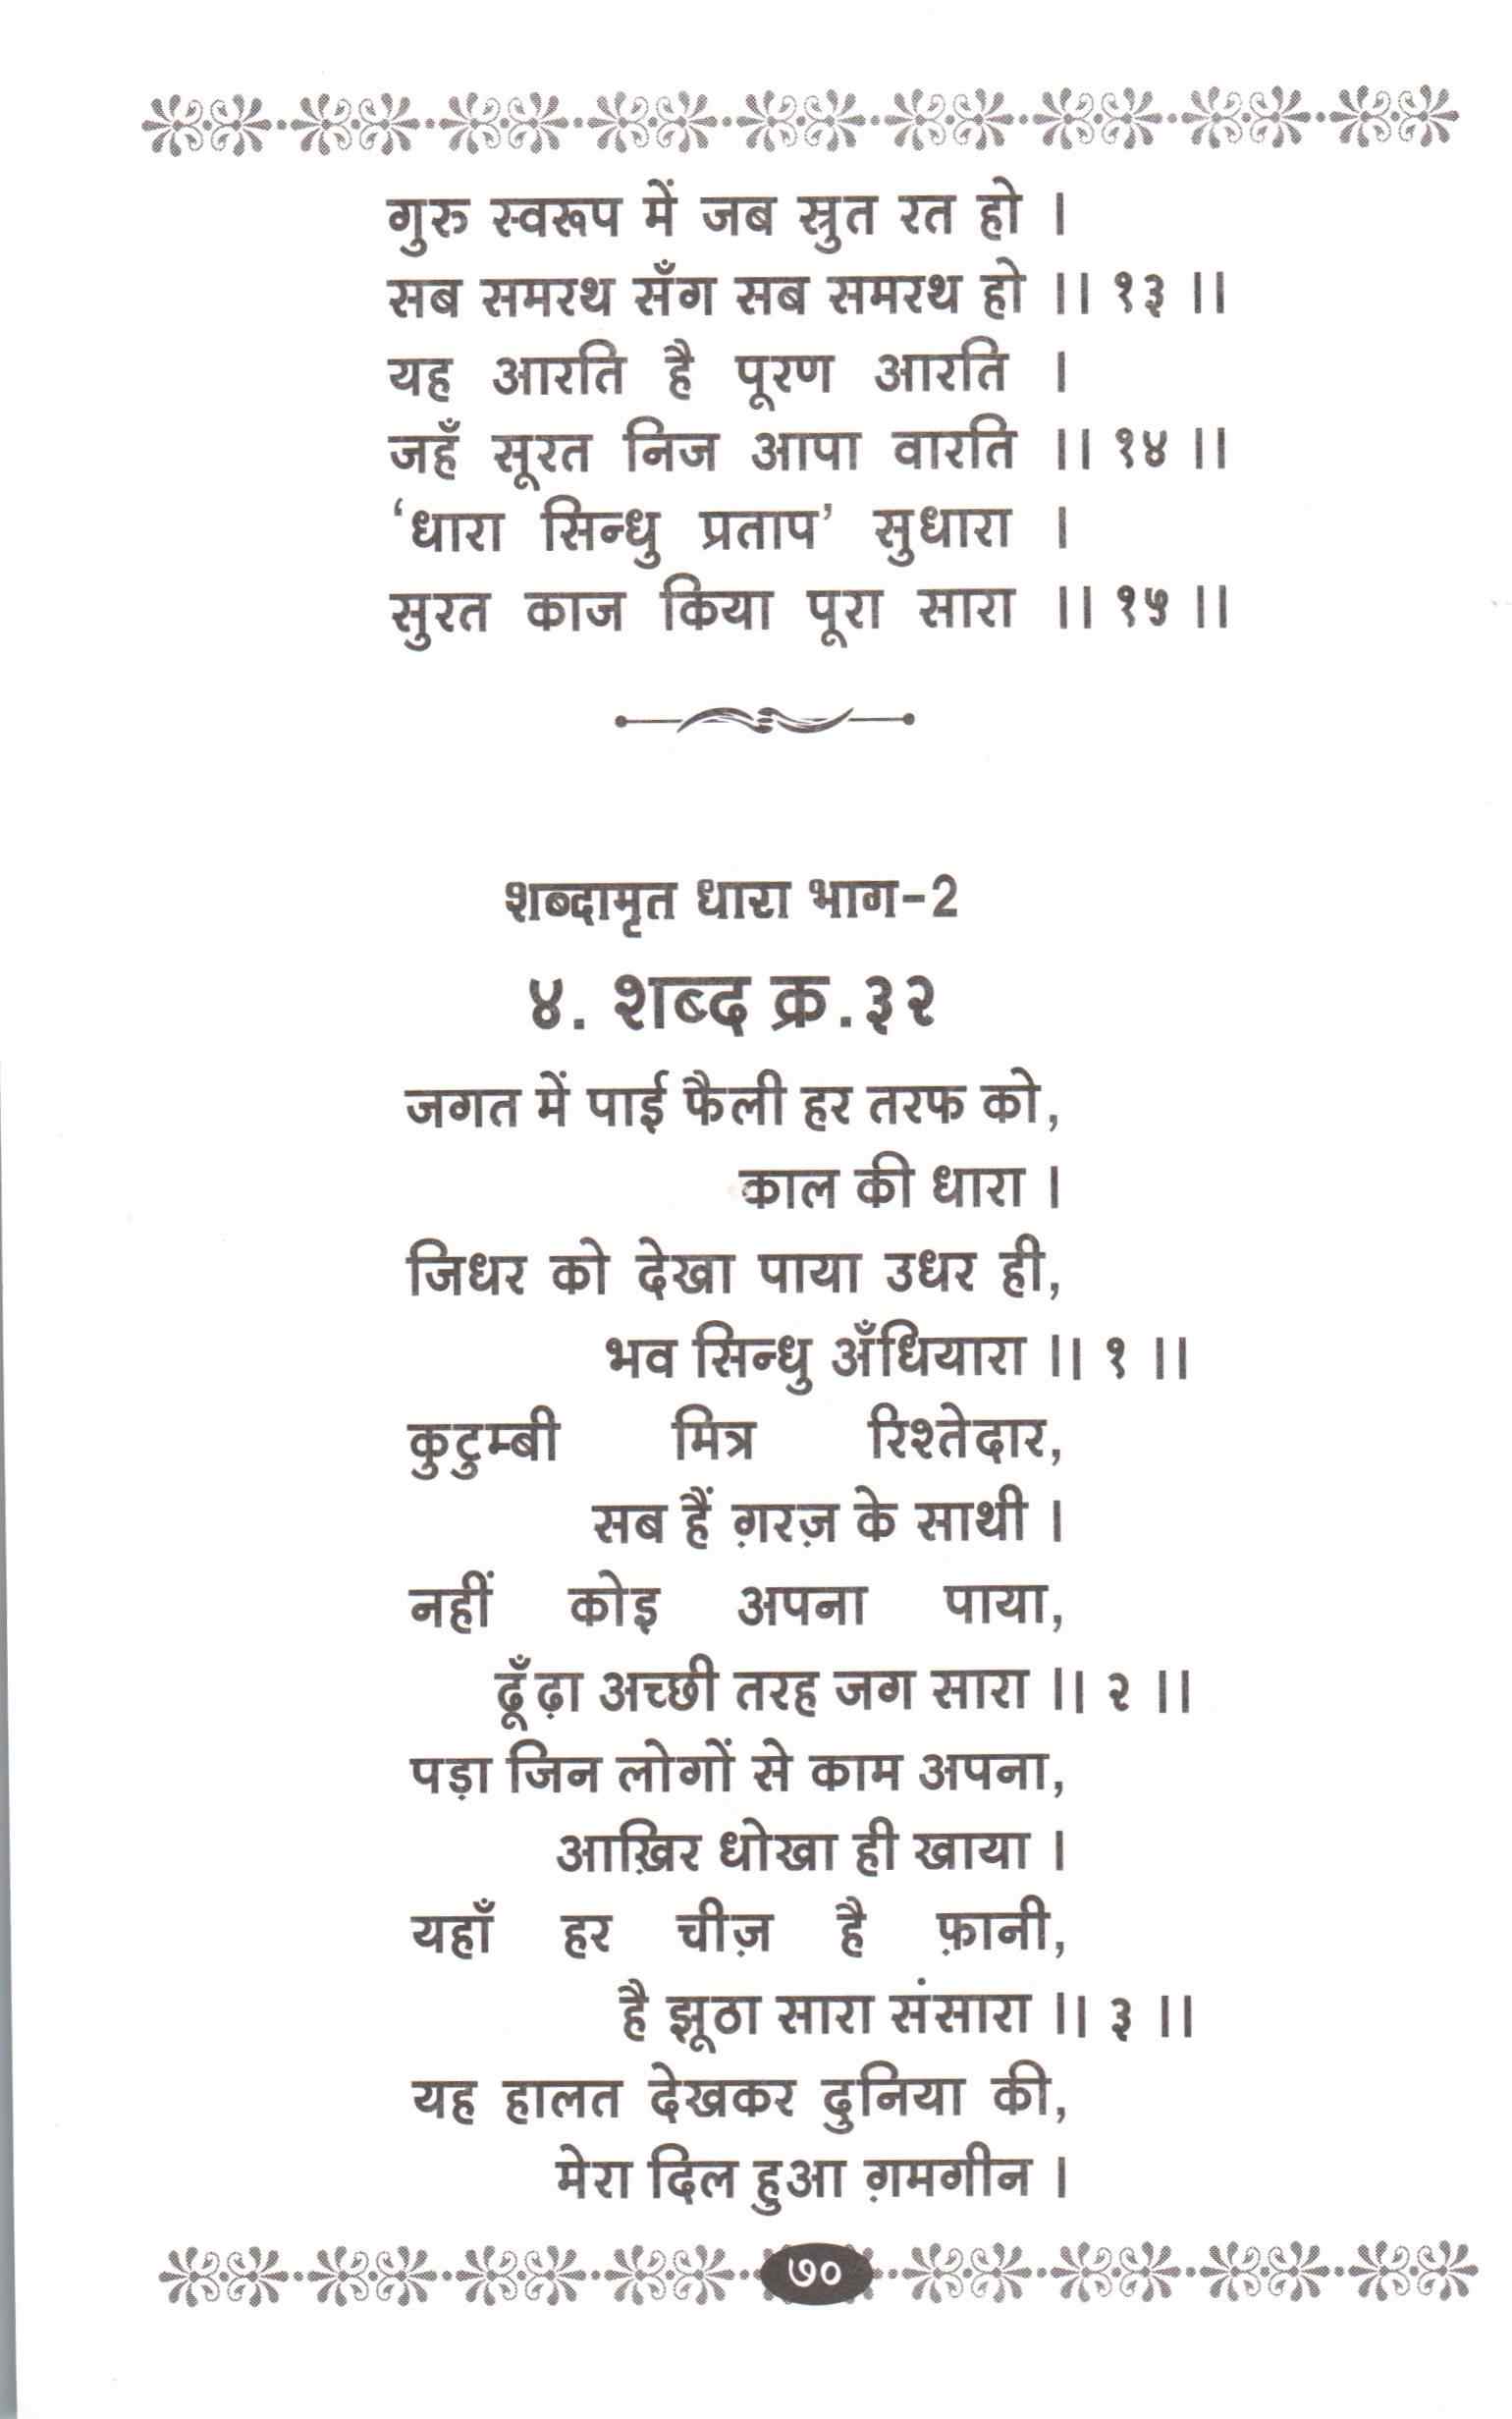 गुरु स्वरूप में जब स्रुत रत हो ।
सब समरथ सँग सब समरथ हो ।। १३ ।।
यह आरति है पूरण आरति ।
जहँ सूरत निज आपा वारति ।। १४ ।।
‘धारा सिन्धु प्रताप’ सुधारा ।
सुरत काज किया पूरा सारा ।। १५ ।।
शब्दामृत धारा भाग-2
४. शब्द क्र.३२
जगत में पाई फैली हर तरफ को,
काल की धारा ।
जिधर को देखा पाया उधर ही,
भव सिन्धु अँधियारा ।। १ ।।
कुटुम्बी मित्र रिश्तेदार,
सब हैं ग़रज़ के साथी ।
नहीं कोइ अपना पाया,
ढूँढ़ा अच्छी तरह जग सारा ।। २ ।।
पड़ा जिन लोगों से काम अपना,
आख़िर धोखा ही खाया ।
यहाँ हर चीज़ है फ़ानी,
है झूठा सारा संसारा ।। ३ ।।
यह हालत देखकर दुनिया की,
मेरा दिल हुआ ग़मगीन ।
७०